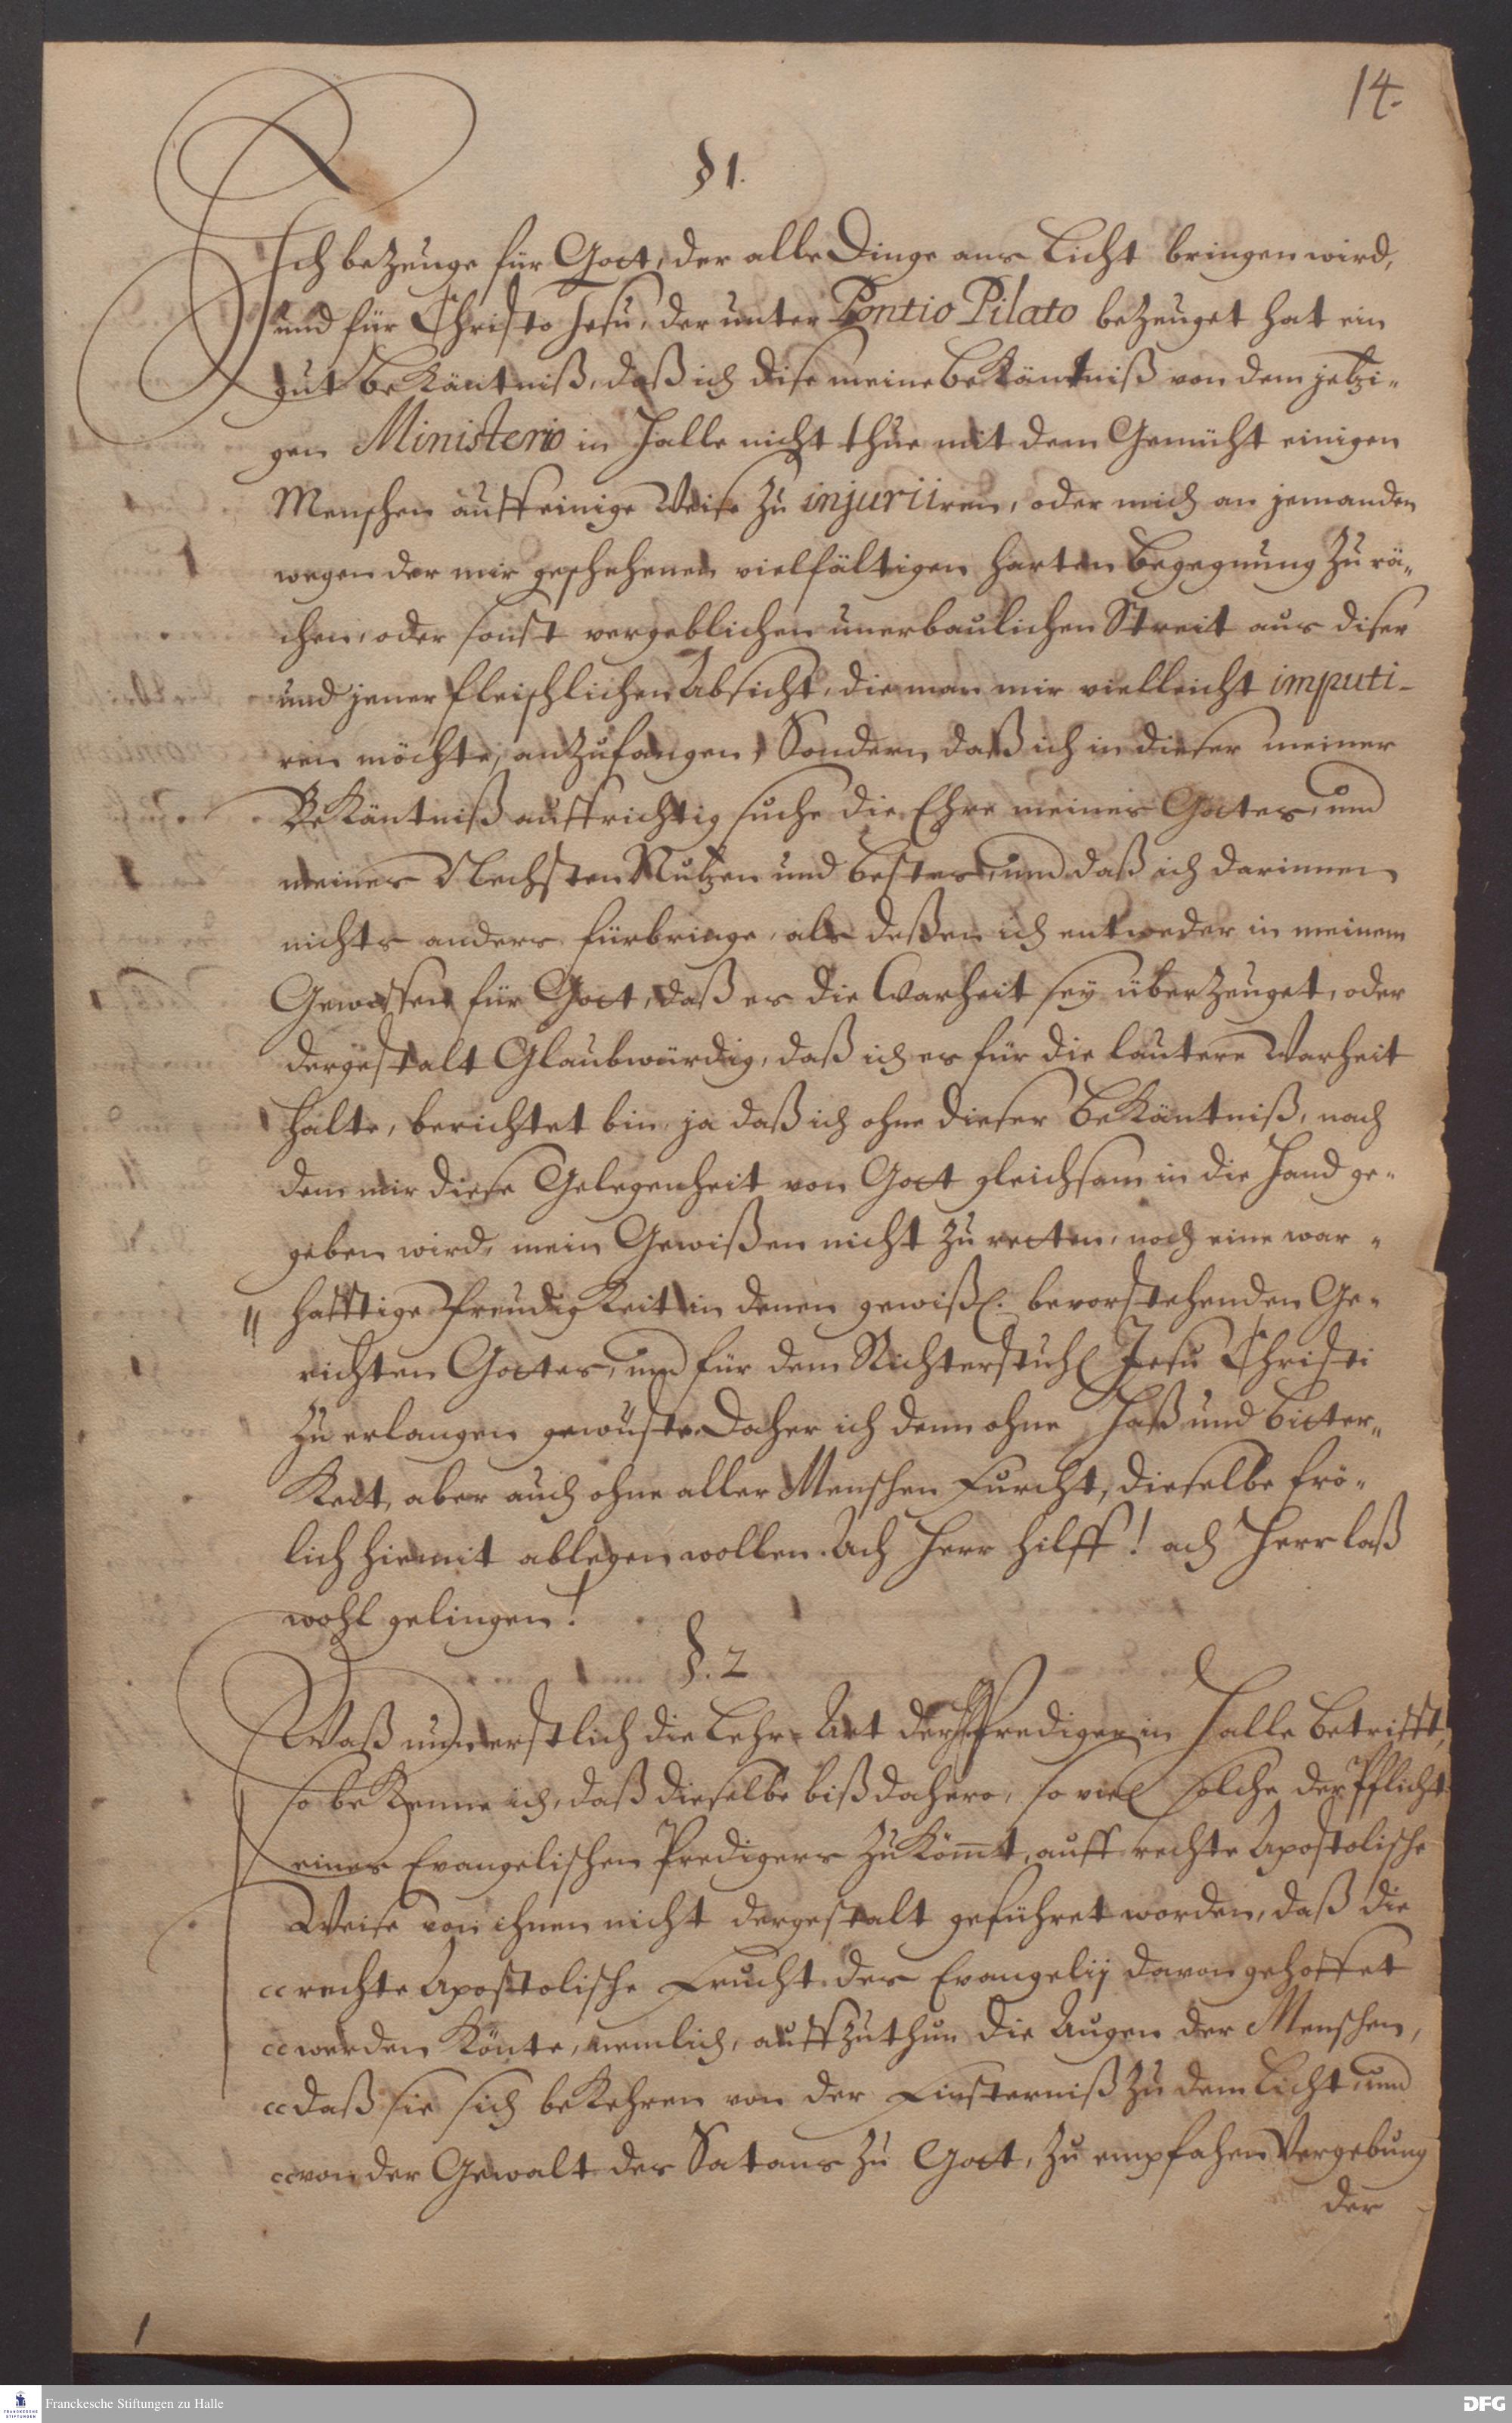 14.
§ 1.
Ich bezeuge für Gott, der alle Dinge ans Licht bringen wird,
und für Christo Jesu, der unter Pontio Pilato bezeuget hat ein
gut bekäntniß, daß ich dise meine bekäntniß von dem jetzi-
gen Ministerio in Halle nicht thue mit dem Gemüht einigen
Menschen auff einige Weise zu injuriiren, oder mich an jemanden
wegen der mir geschehenen vielfältigen harten begegnung zu rä-
chen, oder sonst vergeblichen unerbaulichen Streit aus diser
und jener fleischlichen Absicht, die man mir vielleicht imputi-
ren möchte, anzufangen, Sondern daß ich in dieser meiner
Bekäntniß auffrichtig suche die Ehre meines Gottes, und
meines Nechsten Nutzen und bestes, und daß ich darinnen
nichts anders fürbringe, als deßen ich entweder in meinem
Gewissen für Gott, daß es die Warheit sey überzeuget, oder
dergestalt Glaubwürdig, daß ich es für die lautere Warheit
halte, berichtet bin, ja daß ich ohne dieser bekäntniß, nach
dem mir diese Gelegenheit von Gott gleichsam in die Hand ge-
geben wird, mein Gewißen nicht zu retten, noch eine war-
" hafftige Freudigkeit in denen gewißl. bevorstehenden Ge-
richten Gottes, und für dem Richterstuhl Jesu Christi
zu erlangen gewüste. Daher ich denn ohne Haß und bitter-
keit, aber auch ohne aller Menschen Furcht, dieselbe frö-
lich hiemit ablegen wollen. Ach Herr hilff! ach Herr laß
wohl gelingen!
§. 2
Waß nun erstlich die Lehr-Art der Prediger in Halle betrifft,
so bekenne ich, daß dieselbe biß dahero, so viel solche der Pflicht
eines Evangelischen Predigers zukömmt, auff rechte Apostolische
Weise von ihnen nicht dergestalt geführet worden, daß die
"rechte Apostolische Frucht des Evangelij davon gehoffet
"werden könte, nemlich, auffzuthun die Augen der Menschen,
"daß sie sich bekehren von der Finsterniß zu dem Licht, und
"von der Gewalt des Satans zu Gott, zu empfahen Vergebung
der
1
Franckesche Stiftungen zu Halle
DFG